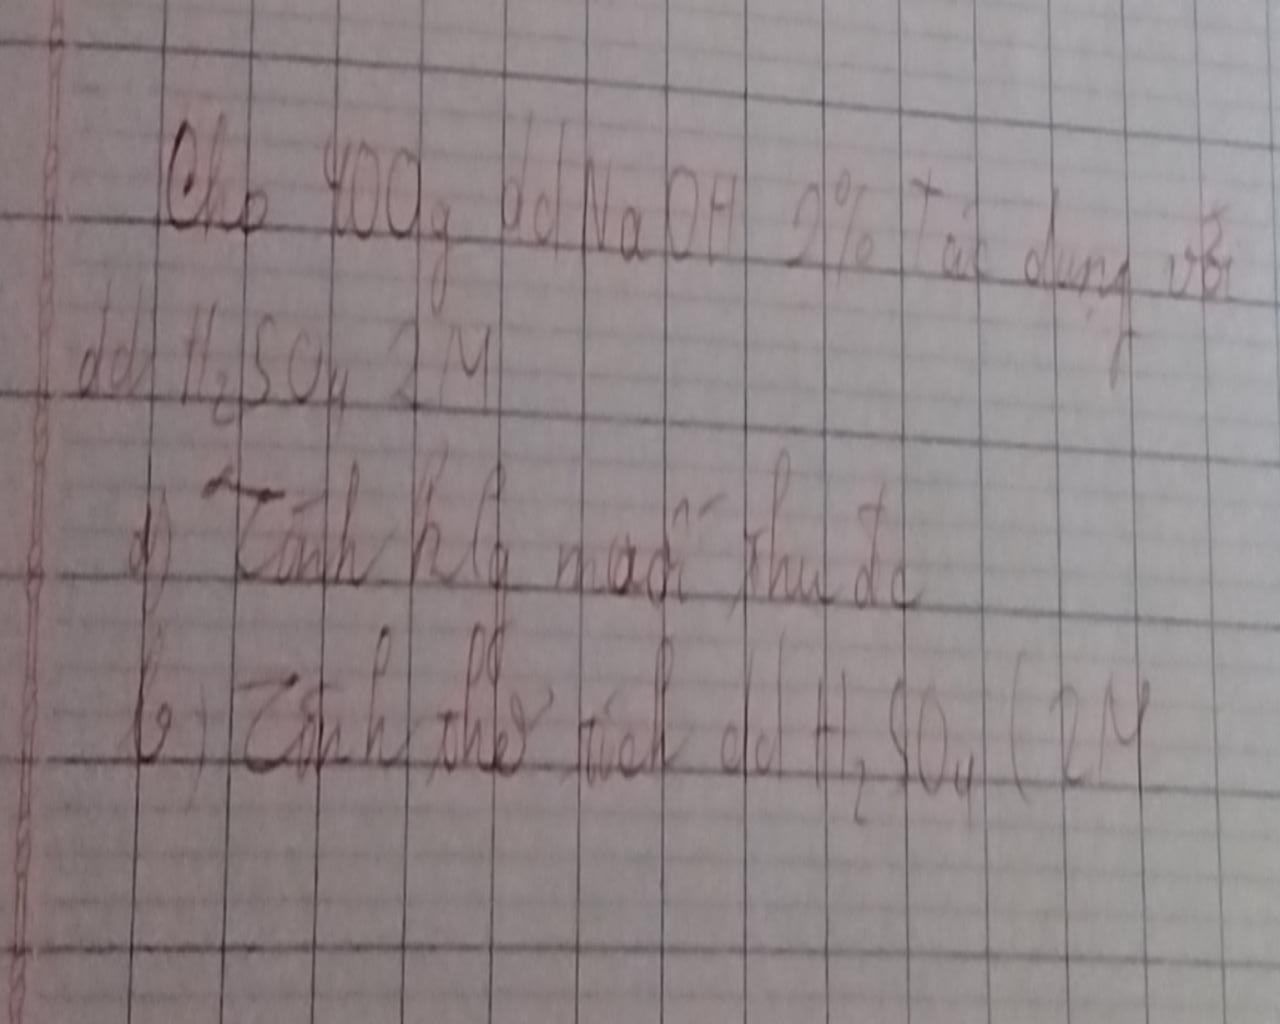 Cho 400g dd NaOH 2% Tác dụng với
dd H₂SO₄ 2M
a) Tính klg muối thu đc
b) Tính thể tích dd H₂SO₄ (2M